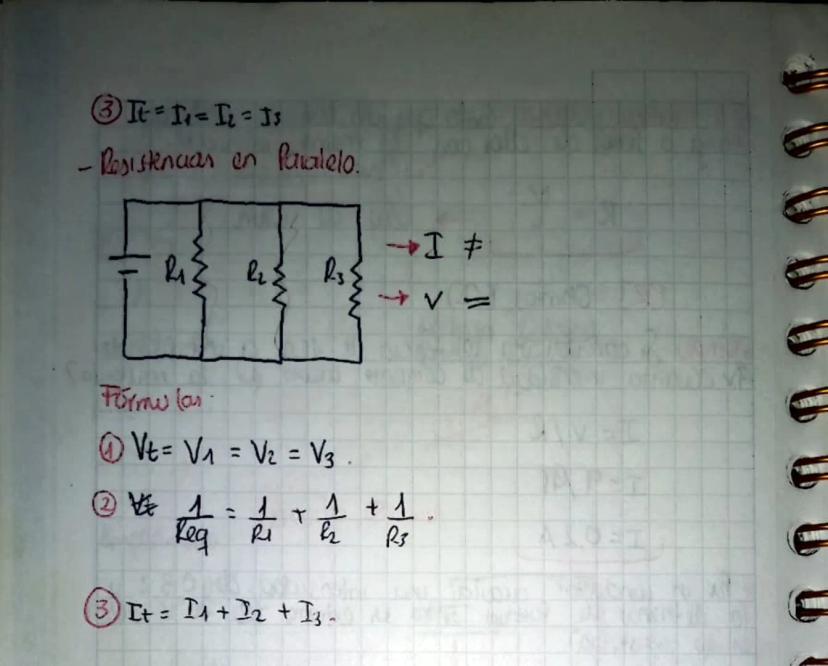 ③ It = I1 = I2 = I3
- Resistencias en Paralelo.
R1 R2 R3 → I ≠
→ V =
Fórmulas.
① Vt = V1 = V2 = V3.
② 1/Req = 1/R1 + 1/R2 + 1/R3.
③ It = I1 + I2 + I3.